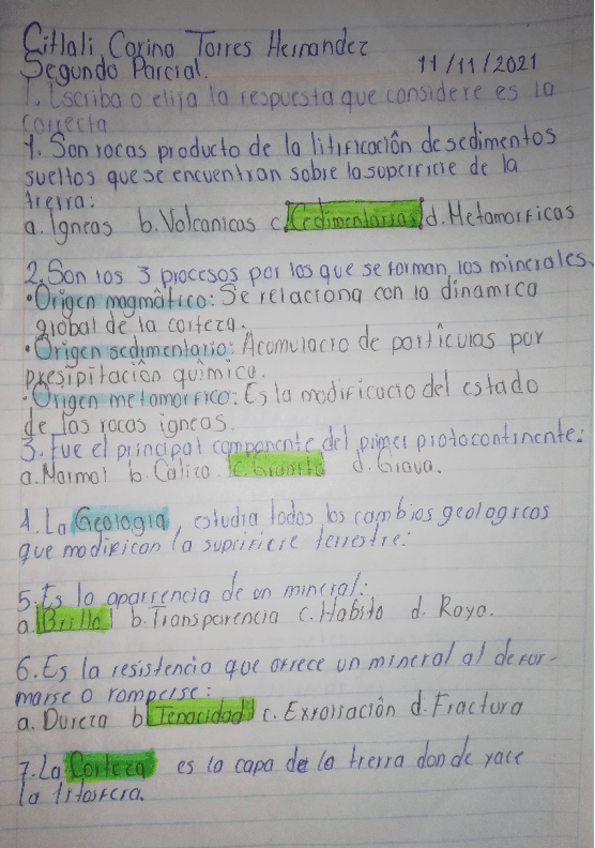 Citlali Corina Torres Hernandez
Segundo Parcial. 11/11/2021
1. Escriba o elija la respuesta que considere es la
correcta
1. Son rocas producto de la litificación de sedimentos
sueltos que se encuentran sobre la superficie de la
tierra:
a. Igneas b. Volcanicas c. Cedimentarias d. Metamorficas
2. Son los 3 procesos por los que se forman los minerales.
• Origen magmático: Se relaciona con la dinamica
global de la corteza.
• Origen sedimentario: Acomulacio de particulas por
presipitación química.
• Origen metamorfico: Es la modificacio del estado
de las rocas igneas.
3. Fue el principal componente del primer protocontinente:
a. Marmol b. Caliza c. Granito d. Grava.
4. La Geologia, estudia todos los cambios geologicos
que modifican la superficie terrestre:
5. Es la aparrencia de un mineral:
a. Brillo b. Transparencia c. Habito d. Raya.
6. Es la resistencia que ofrece un mineral al defor-
marse o romperse:
a. Dureza b. Tenacidad c. Exfoliación d. Fractura
7. La Corteza es la capa de la tierra donde yace
la litosfera.